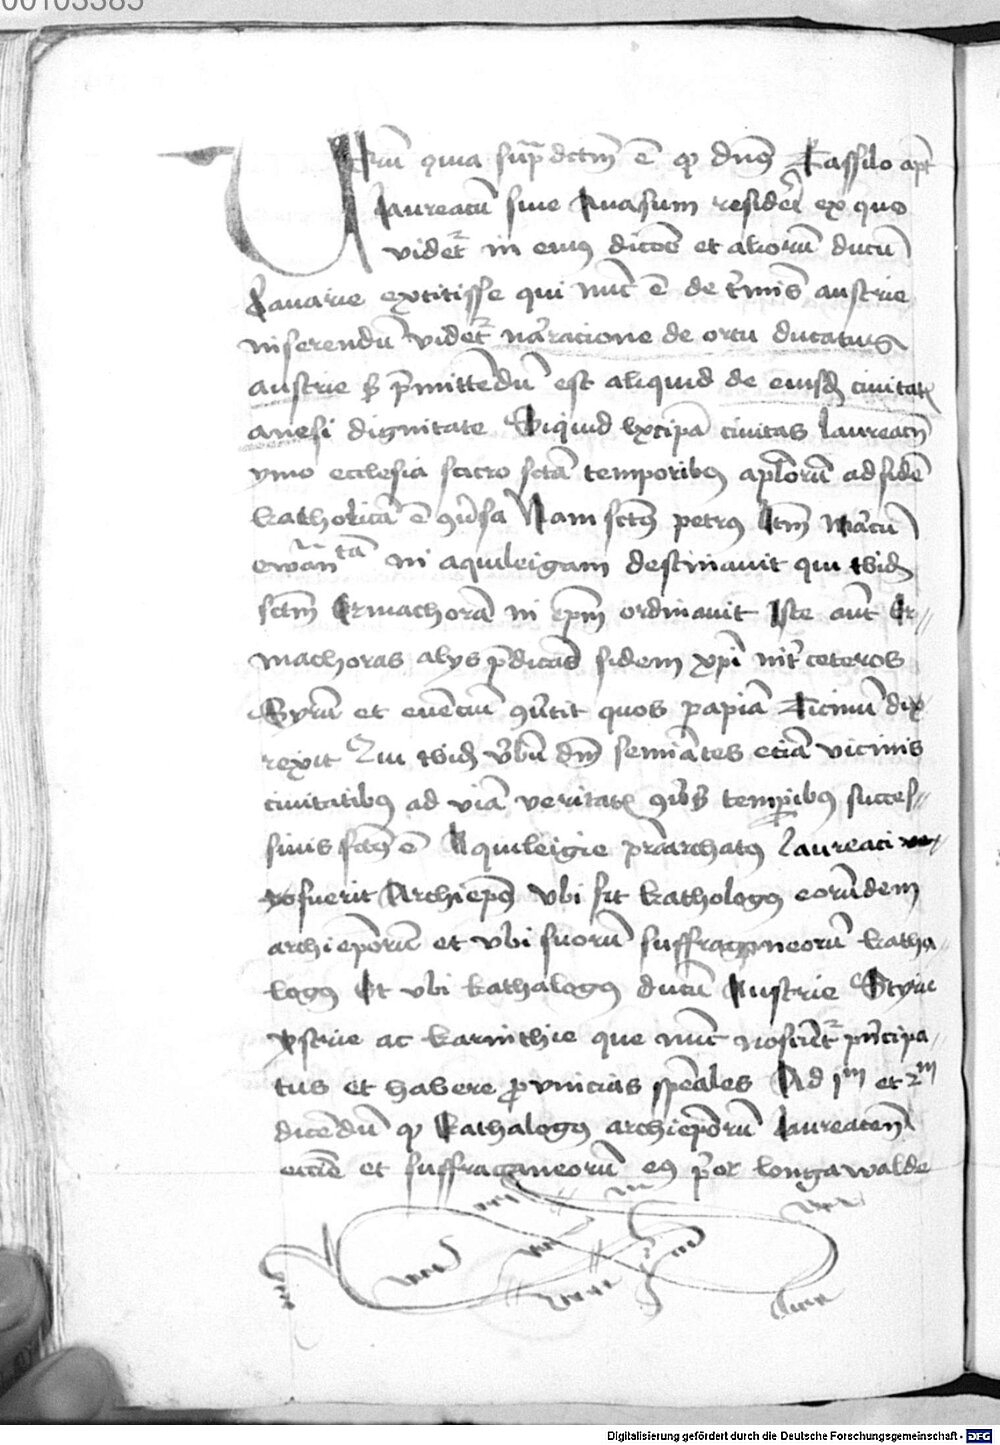 00103385
Verū quia sup̄dctm̄ ē qꝫ dn̄s Tassilo apt̄
Laureacū siue Anasum residēt ex quo
videt᷑ in eiuꝫ dicōe et alioꝝ ducū
Bauarie extitisse qui nūc ē de t̄minis austrie
inserendū videt᷑ na᷑racione de ortu ducatus
austrie sꝫ p̄mittēdū est aliquid de eiusdē ciuitatꝭ
anesi dignitate Siquid
ymo ecclesia sctā temporibꝫ aplōrū ad fidē
katholicā ē ꝯūsa Nam sctꝫ petrꝫ Marcū
ewan tā in aquileigam destinauit qui ibidē
sctm̄ Ermachorā in ep̄m ordinauit Iste aūt Er〃
machoras alys p̄dicās fidem xp̄i int̄ ceteros
Syrū et euēciū ꝯūtit quos papiā Ticinū dix
rexit Qui ibidē v̄bū dn̄i semīates eciā vicinis
ciuitatibꝫ ad viā veritatꝭ temp̄ibꝫ succes〃
siuis sctꝫ ē Aquileigie pr̄iarchatꝫ Laureaci
fuerit Archiep̄s vbi sit kathologꝫ eorūdem
archiep̄orū et vbi suorū suffraganeorū katha〃
logꝫ Et vbi kathalogꝫ ducū Austrie Styrie
ystrie ac karinthie que nūc noscūt᷑ p̄ncipa〃
tus et habere ꝓuincias sp̄eales Ad 1m et 2m
dicēdū qꝫ kathalogꝫ archiep̄orū laureaceñ
eccīe et suffraganeorū eꝫ p̄or longa walde
Digitalisierung gefördert durch die Deutsche Forschungsgemeinschaft - DFG